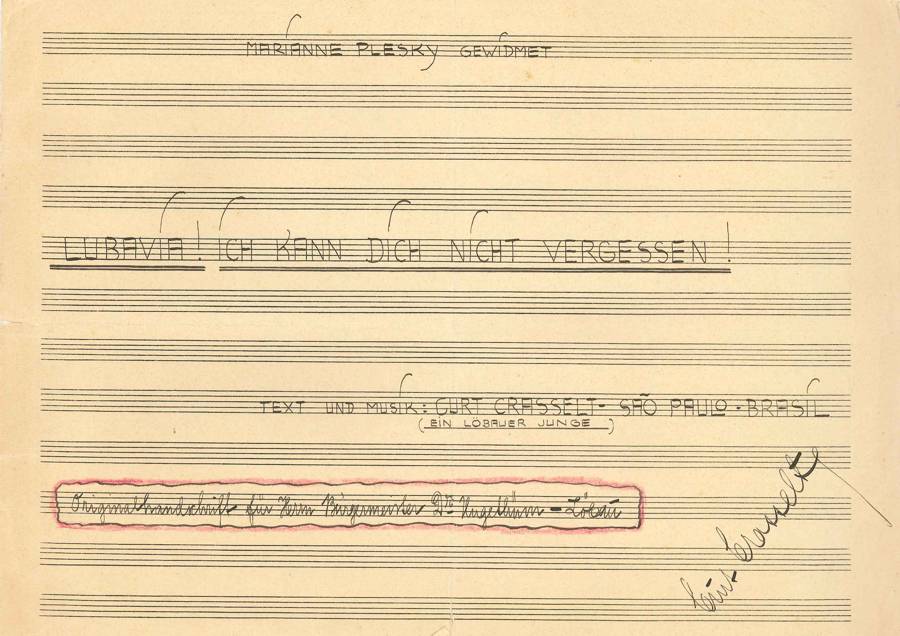 MARIANNE PLESKY GEWIDMET
LUBAVIA! ICH KANN DICH NICHT VERGESSEN!
TEXT UND MUSIK: CURT CRASSELT - SÃO PAULO - BRASIL
(EIN LÖBAUER JUNGE)
Originalhandschrift für Herrn Bürgermeister Dr. - Löbau
Curt Crasselt